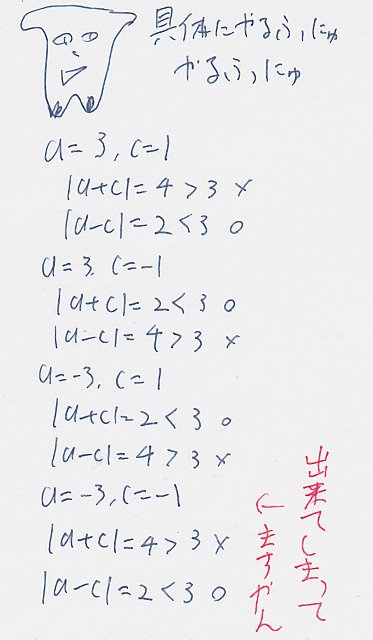 具体にやるぅ,にゅ
やるぅ,にゅ
a=3, c=1
|a+c|=4>3 ×
|a-c|=2<3 ○
a=3, c=-1
|a+c|=2<3 ○
|a-c|=4>3 ×
a=-3, c=1
|a+c|=2<3 ○
|a-c|=4>3 ×
a=-3, c=-1
|a+c|=4>3 ×
|a-c|=2<3 ○
出来てしまって
にますやん